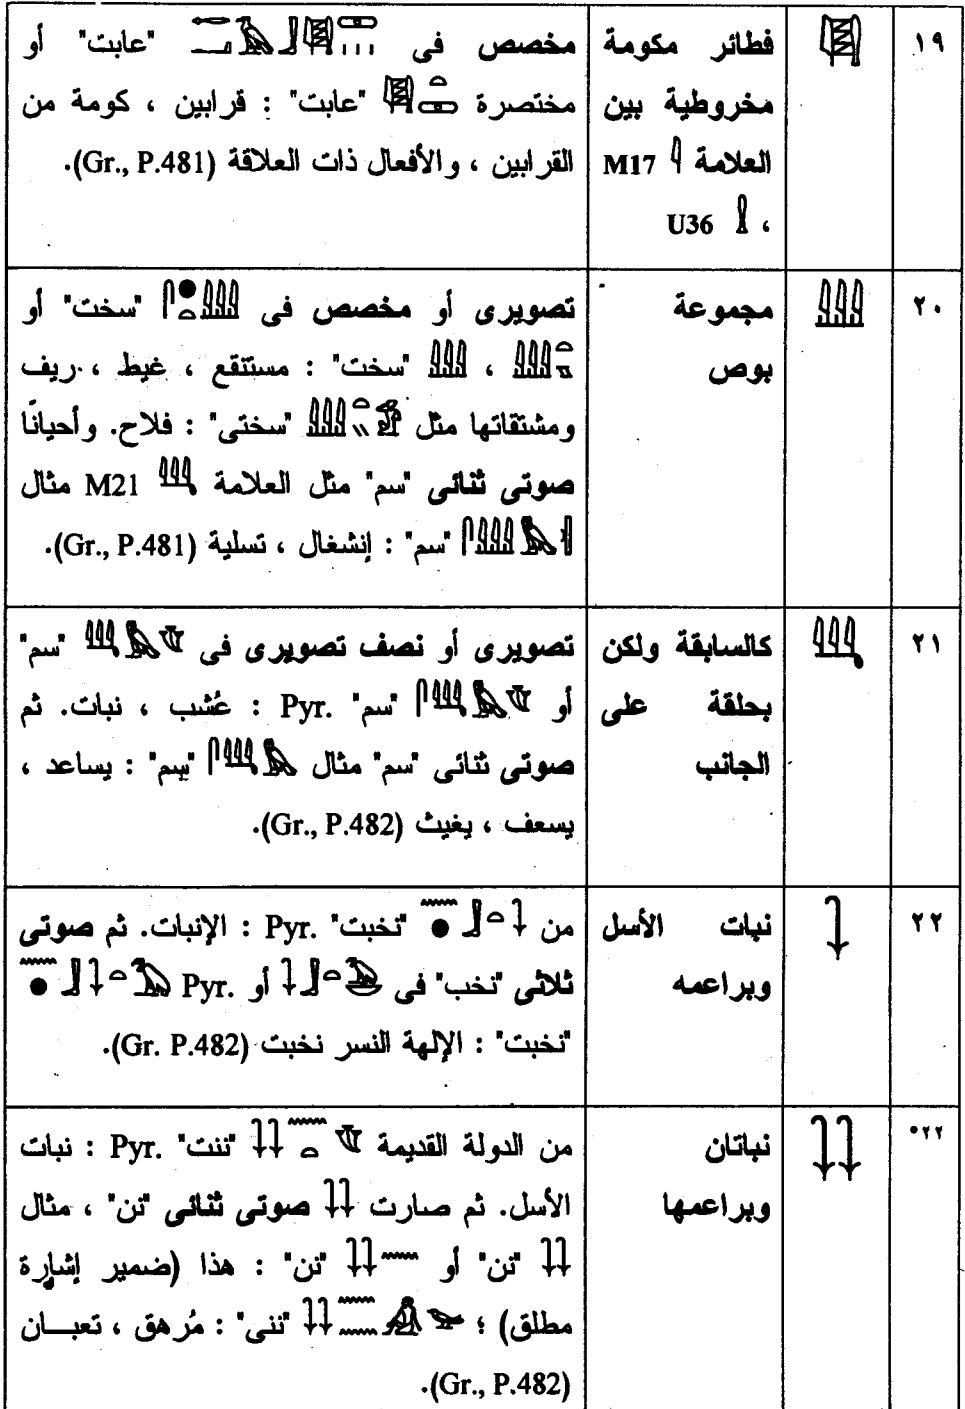 ١٩
فطائر مكومة
مخروطية بين
العلامة 𓇋 M17
، 𓍛 U36
مخصص فى "عابت" أو
مختصرة "عابت" : قرابين ، كومة من
القرابين ، والأفعال ذات العلاقة (Gr., P.481).
٢٠
𓇏
مجموعة
بوص
تصويرى أو مخصص فى "سخت" أو
، 𓇏 "سخت" : مستنقع ، غيط ، ريف
ومشتقاتها مثل "سختى" : فلاح. وأحيانًا
صوتى ثنائى "سم" مثل العلامة 𓇑 M21 مثال
"سم" : إنشغال ، تسلية (Gr., P.481).
٢١
𓇑
كالسابقة ولكن
بحلقة على
الجانب
تصويرى أو نصف تصويرى فى "سم"
أو "سم" Pyr. : عُشب ، نبات. ثم
صوتى ثنائى "سم" مثال "سم" : يساعد ،
يسعف ، يغيث (Gr., P.482).
٢٢
𓇓
نبات الأسل
وبراعمه
من "نخبت" Pyr. : الإنبات. ثم صوتى
ثلاثى "نخب" فى أو Pyr.
"نخبت" : الإلهة النسر نخبت (Gr. P.482).
٢٢*
𓇒𓇒
نباتان
وبراعمها
من الدولة القديمة "ننت" Pyr. : نبات
الأسل. ثم صارت صوتى ثنائى "نن" ، مثال
"نن" أو "نن" : هذا (ضمير إشارة
مطلق) ؛ "ننى" : مُرهق ، تعبـــان
(Gr., P.482).